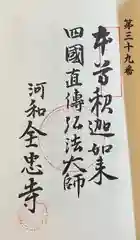 第三十九番
本尊釈迦如来
四國直傳弘法大師
河和全忠寺